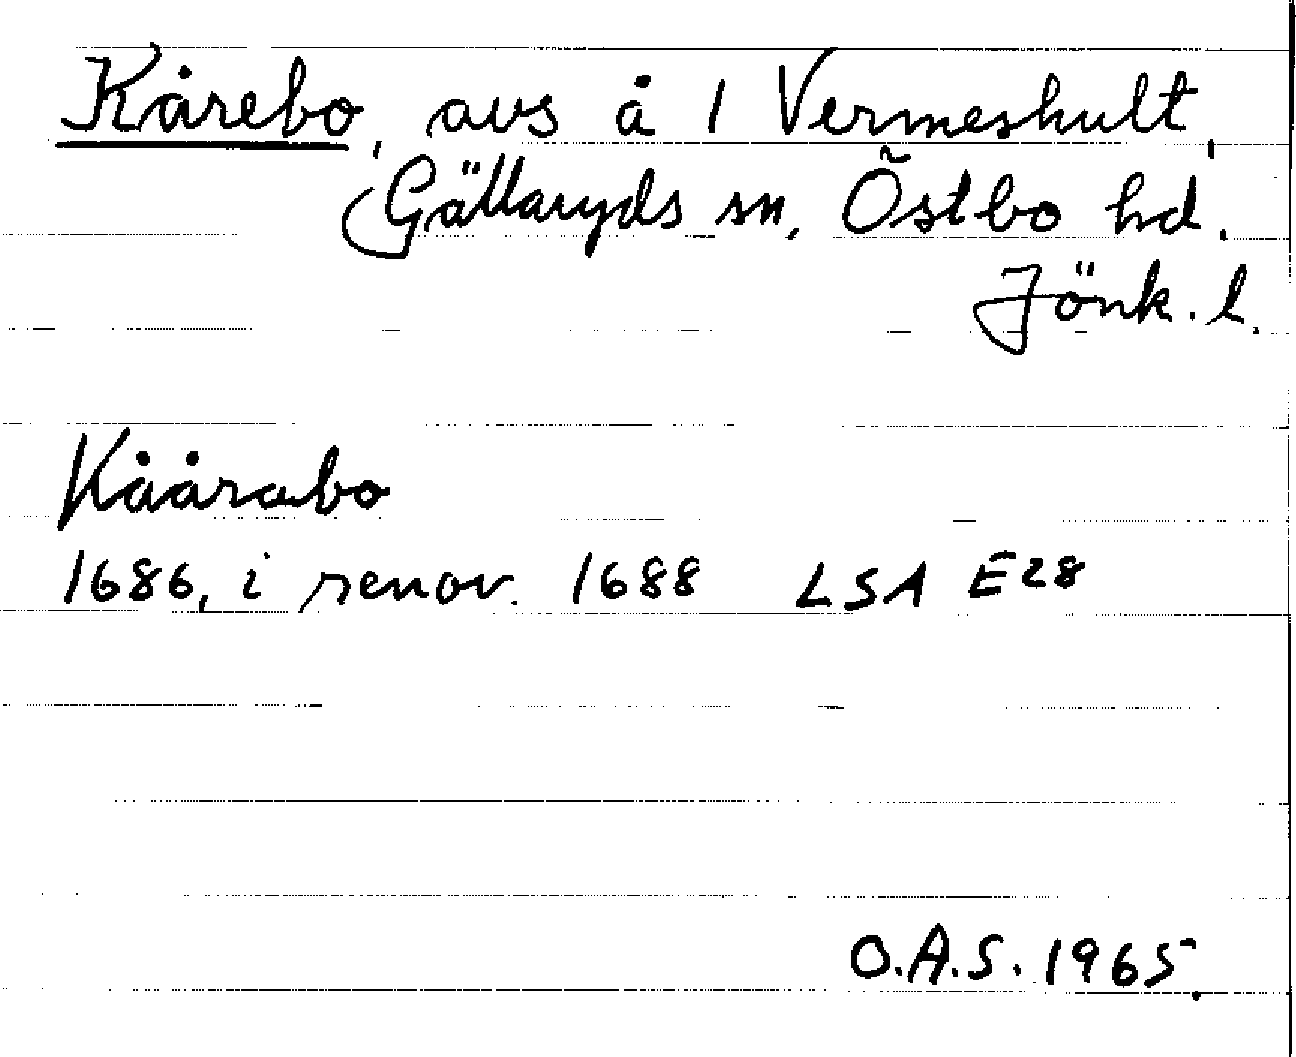 Kårebo, avs å 1 Vermeshult,
Gällaryds sn, Östbo hd,
Jönk. l.
Kåårabo
1686, i renov. 1688 LSA E28
O.A.S. 1965.